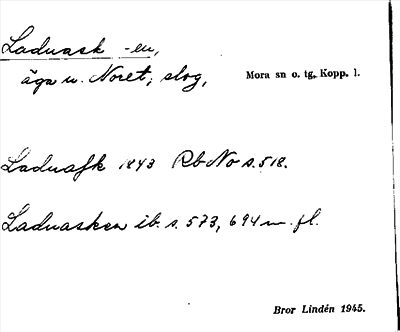 Laduask -en,
äga u. Noret; slog,
Mora sn o. tg. Kopp. l.
Laduafk 1843 Rb No s. 518.
Laduasken ib. s. 573, 694 m. fl.
Bror Lindén 1945.